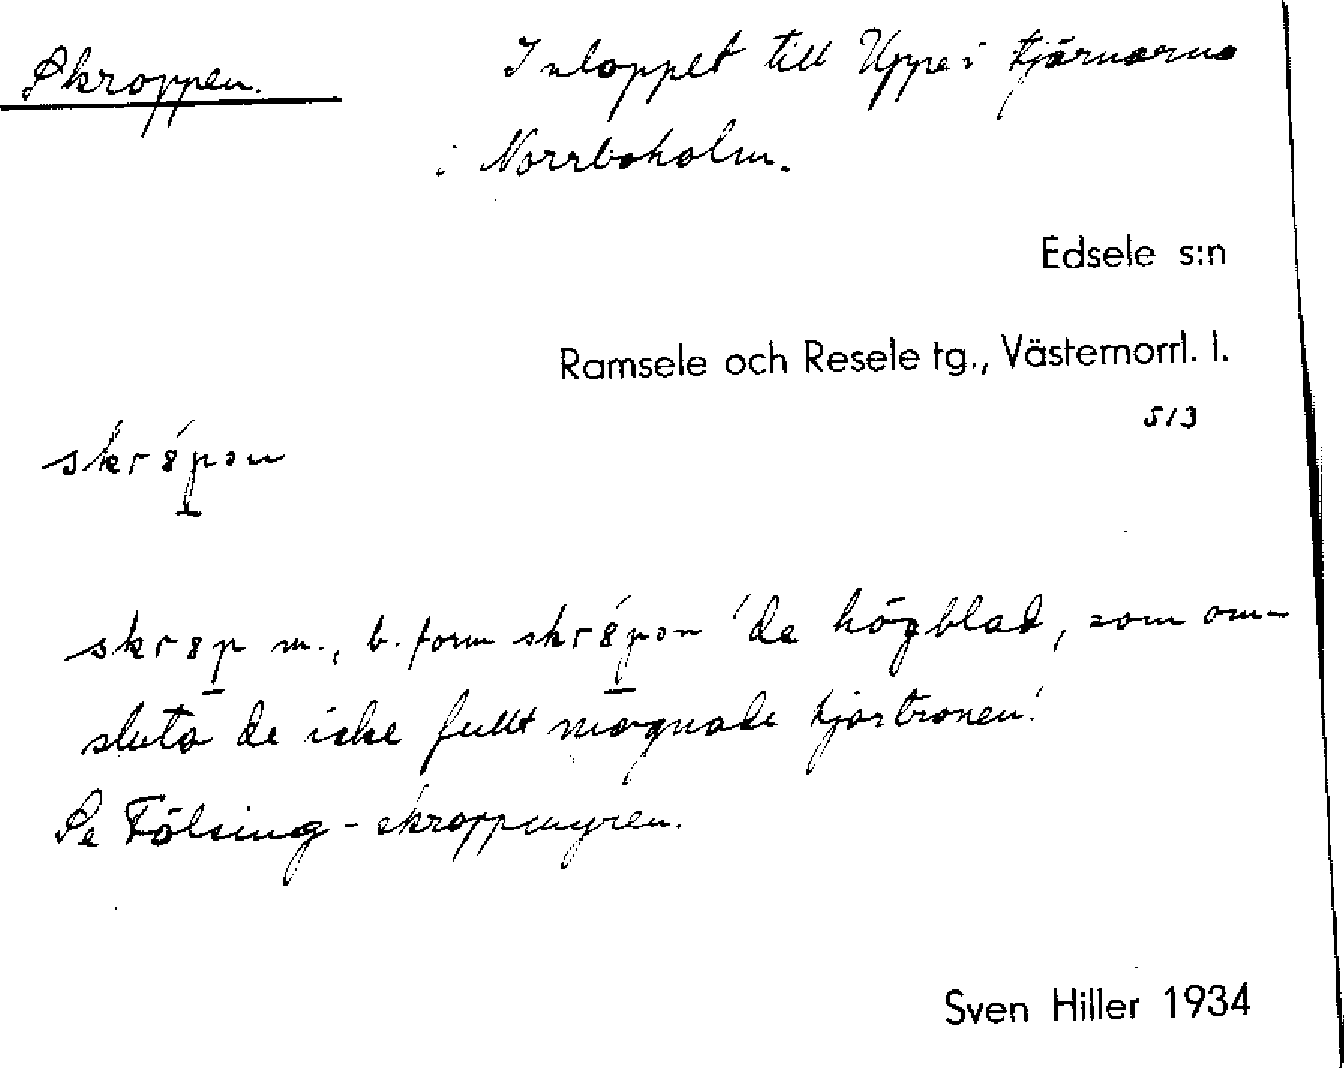 Skroppen. Inloppet till Uppe i tjärnarna
i Norrboholm.
Edsele s:n
Ramsele och Resele tg., Västernorrl. l.
513
skr8́pən
skr8p m., b. form skr8́pən 'de högblad, som om-
sluta de icke fullt mognade hjortronen.'
Se Fölsing-skroppmyren.
Sven Hiller 1934